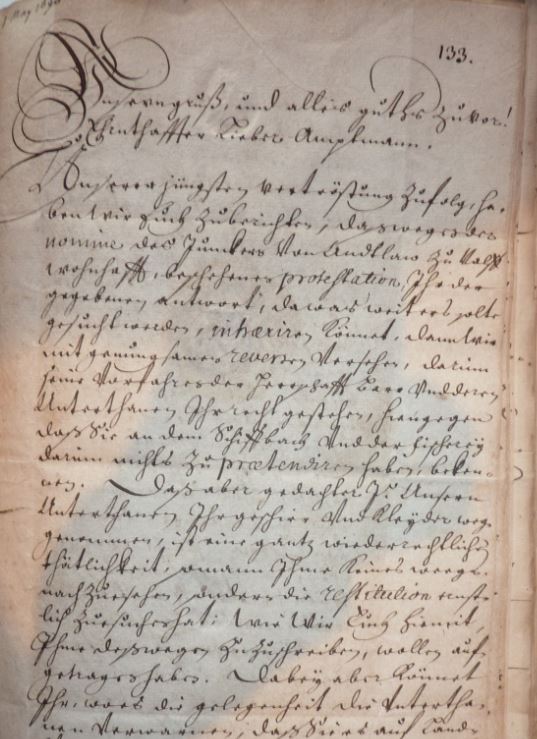 1 May 1690
133.
Unsern gruß, und alles guths Zuvor!
Ehrnthaffter Lieber Amptmann.
Unserer jüngsten vertröstung Zufolg, ha-
ben Wir Euch Zuberichten, das wegen der
nomine des Junkers Von Andlaw Zu Valff
wohnhafft, beschehenen protestation, Ihr der
gegebenen antwort, da was weiters solte
gesucht werden, inhæriren Könnet, dann Wir
mit genungsamen reversen Versehen, darinn
seine Vorfahren der Herrschafft Barr Und deren
Unterthanen Ihr recht gestehen, hingegen
daß Sie an dem Schiffbach Und der fischerey
darinn nichts Zu prætendiren haben, beken-
nen. Daß aber gedachter Jr. Unsern
Unterthanen Ihr geschirr Und Kleyder weg-
genommen, ist eine gantz wiederrechtliche
thätlichkeit, Ihme Keines weegs
nachZusehen, sondern die restitution
Zusuchen hat: Wie Wir Euch hiemit,
Ihme deßwegen ZuZuschreiben, wollen auf-
getragen haben. Dabey aber Könnet
Ihr, die gelegenheit die Untertha-
nen Verwarnen, daß Sie auf